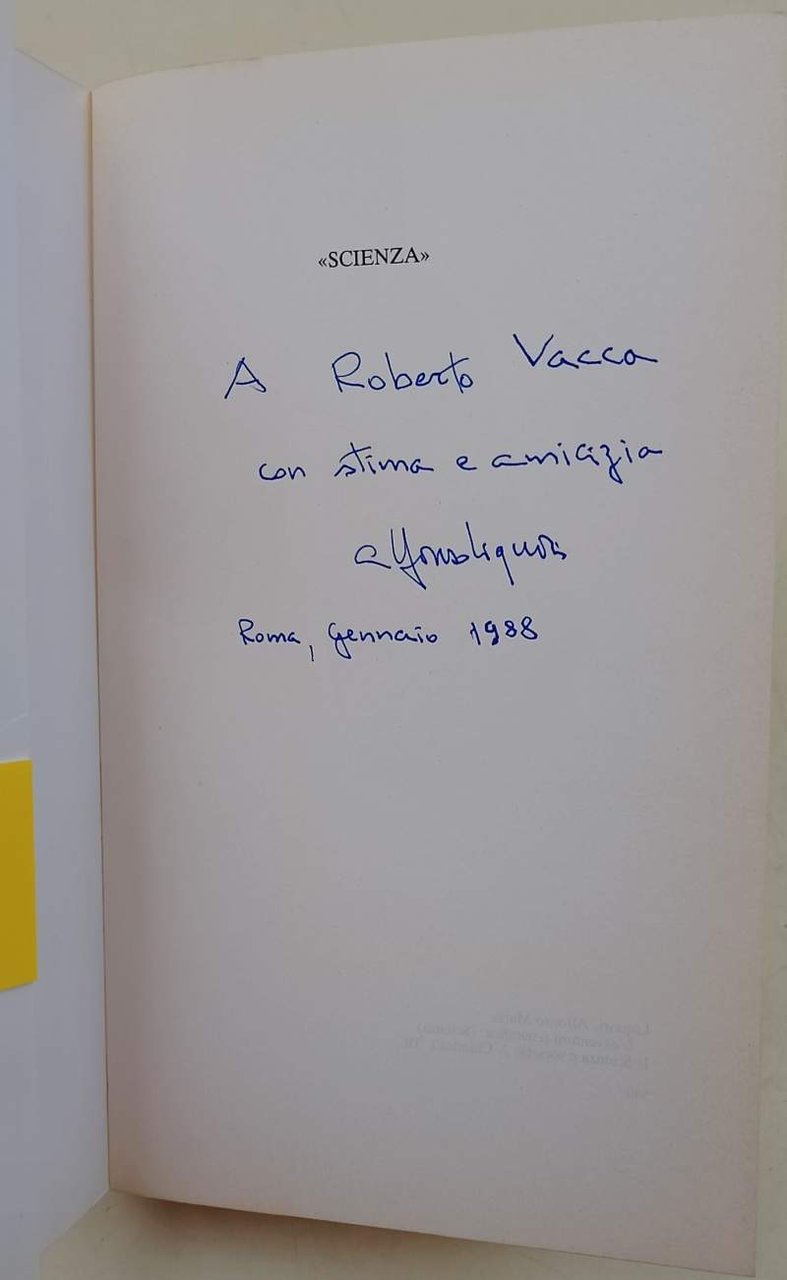 «SCIENZA»
A Roberto Vacca
con stima e amicizia
alfonsoliquori
Roma, Gennaio 1988